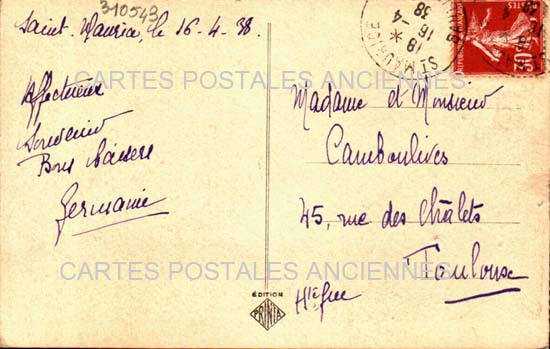 310543
Saint-Maurice, le 16-4-38.
Affectueux
Souvenir
Bons baisers
Germaine
Madame et Monsieur
Camboulives
45, rue des Châlets
Toulouse
Hte Gne
ST MAURICE
18
16-4
38
POSTES
30
CARTES POSTALES ANCIENNES
CARTES POSTALES ANCIENNES
EDITION
PRINTA